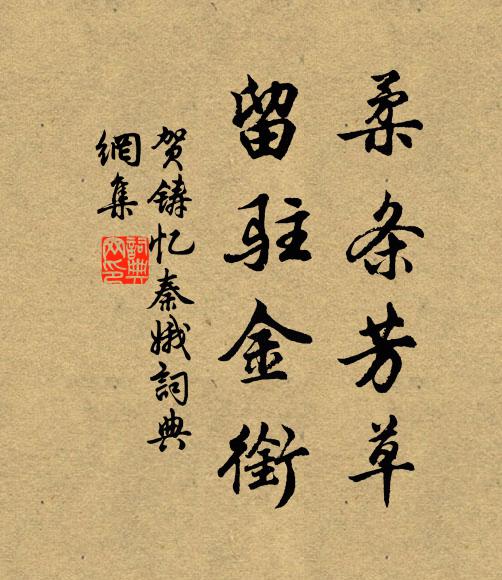 柔条芳草
留驻金衔
贺铸忆秦娥词典
網集
詞典網印